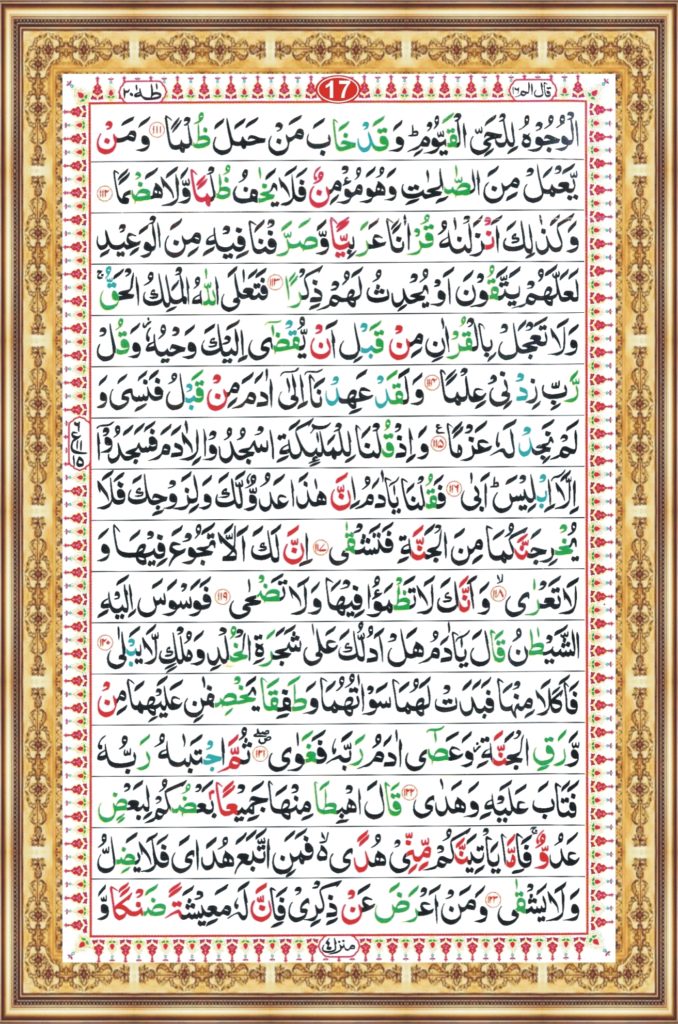 قال الم ١٦ 17 طٰهٰ ٢٠
الْوُجُوْهُ لِلْحَىِّ الْقَيُّوْمِ ؕ وَ قَدْ خَابَ مَنْ حَمَلَ ظُلْمًا ﴿۱۱۱﴾ وَ مَنْ
يَّعْمَلْ مِنَ الصّٰلِحٰتِ وَهُوَ مُؤْمِنٌ فَلَا يَخٰفُ ظُلْمًا وَّلَا هَضْمًا ﴿۱۱۲﴾
وَ كَذٰلِكَ اَنْزَلْنٰهُ قُرْاٰنًا عَرَبِيًّا وَّ صَرَّفْنَا فِيْهِ مِنَ الْوَعِيْدِ
لَعَلَّهُمْ يَتَّقُوْنَ اَوْ يُحْدِثُ لَهُمْ ذِكْرًا ﴿۱۱۳﴾ فَتَعٰلَى اللّٰهُ الْمَلِكُ الْحَقُّ ۚ
وَلَا تَعْجَلْ بِالْقُرْاٰنِ مِنْ قَبْلِ اَنْ يُّقْضٰٓى اِلَيْكَ وَحْيُهٗ ؗ وَقُلْ
رَّبِّ زِدْنِىْ عِلْمًا ﴿۱۱۴﴾ وَ لَقَدْ عَهِدْنَاۤ اِلٰٓى اٰدَمَ مِنْ قَبْلُ فَنَسِىَ وَ
لَمْ نَجِدْ لَهٗ عَزْمًا ﴿۱۱۵﴾ ع وَ اِذْ قُلْنَا لِلْمَلٰٓئِكَةِ اسْجُدُوْا لِاٰدَمَ فَسَجَدُوْۤا
اِلَّاۤ اِبْلِيْسَ ؕ اَبٰى ﴿۱۱۶﴾ فَقُلْنَا يٰۤاٰدَمُ اِنَّ هٰذَا عَدُوٌّ لَّكَ وَ لِزَوْجِكَ فَلَا
يُخْرِجَنَّكُمَا مِنَ الْجَنَّةِ فَتَشْقٰى ﴿۱۱۷﴾ اِنَّ لَكَ اَلَّا تَجُوْعَ فِيْهَا وَ
لَا تَعْرٰى ۙ﴿۱۱۸﴾ وَ اَنَّكَ لَا تَظْمَؤُا فِيْهَا وَلَا تَضْحٰى ﴿۱۱۹﴾ فَوَسْوَسَ اِلَيْهِ
الشَّيْطٰنُ قَالَ يٰۤاٰدَمُ هَلْ اَدُلُّكَ عَلٰى شَجَرَةِ الْخُلْدِ وَمُلْكٍ لَّا يَبْلٰى ﴿۱۲۰﴾
فَاَكَلَا مِنْهَا فَبَدَتْ لَهُمَا سَوْاٰتُهُمَا وَ طَفِقَا يَخْصِفٰنِ عَلَيْهِمَا مِنْ
وَّرَقِ الْجَنَّةِ ؗ وَ عَصٰٓى اٰدَمُ رَبَّهٗ فَغَوٰى ﴿۱۲۱﴾ ثُمَّ اجْتَبٰهُ رَبُّهٗ
فَتَابَ عَلَيْهِ وَ هَدٰى ﴿۱۲۲﴾ قَالَ اهْبِطَا مِنْهَا جَمِيْعًۢا بَعْضُكُمْ لِبَعْضٍ
عَدُوٌّ ۚ فَاِمَّا يَاْتِيَنَّكُمْ مِّنِّىْ هُدًى ۙ فَمَنِ اتَّبَعَ هُدَاىَ فَلَا يَضِلُّ
وَلَا يَشْقٰى ﴿۱۲۳﴾ وَ مَنْ اَعْرَضَ عَنْ ذِكْرِىْ فَاِنَّ لَهٗ مَعِيْشَةً ضَنْكًا وَّ
منزل ٤